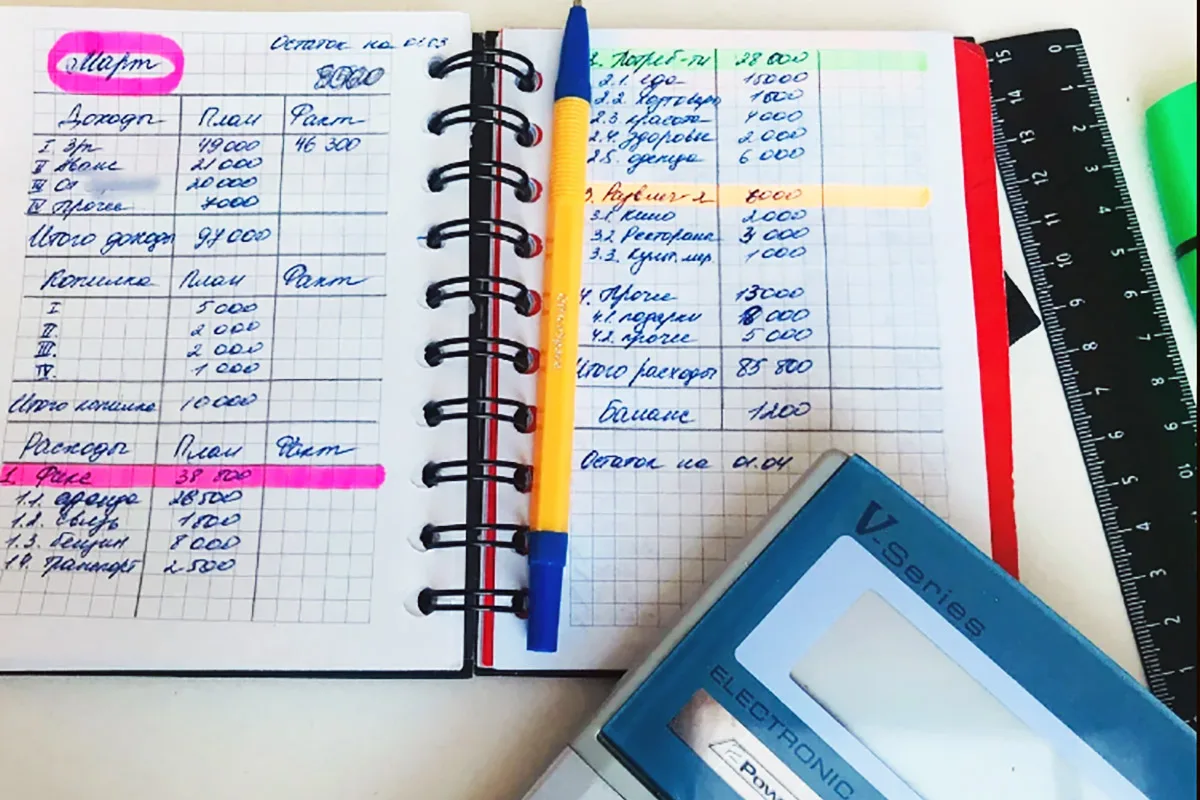 Март
Остаток на 01.03
Доходы План Факт
I З/п 49 000 46 300
II Аванс 21 000
III От 20 000
IV Прочее 7000
Итого доходы 97 000
Копилка План Факт
I 5 000
II. 2 000
III. 2 000
IV. 1 000
Итого копилка 10 000
Расходы План Факт
1. Фикс 38 800
1.1. аренда 26 500
1.2. связь 1 800
1.3. бензин 8 000
1.4. транспорт 2 500
2. Потреб-ти 28 000
2.1. еда 15000
2.2. хозтовары
2.3. красота 4000
2.4. здоровье 2 000
2.5. одежда 6 000
3. Развлеч-я 6000
3.1. Кино 2000
3.2 Рестораны 3 000
3.3. Культ. мер. 1 000
4. Прочее 13000
4.1. подарки 8 000
4.2. прочее 5 000
Итого расходы 85 800
Баланс 1200
Остаток на 01.04
0 1 2 3 4 5 6 7 8 9 10
15 14 13 12 11 10 9 8 7 6 5 4 3 2 1
V-Series
ELECTRONIC
Pow